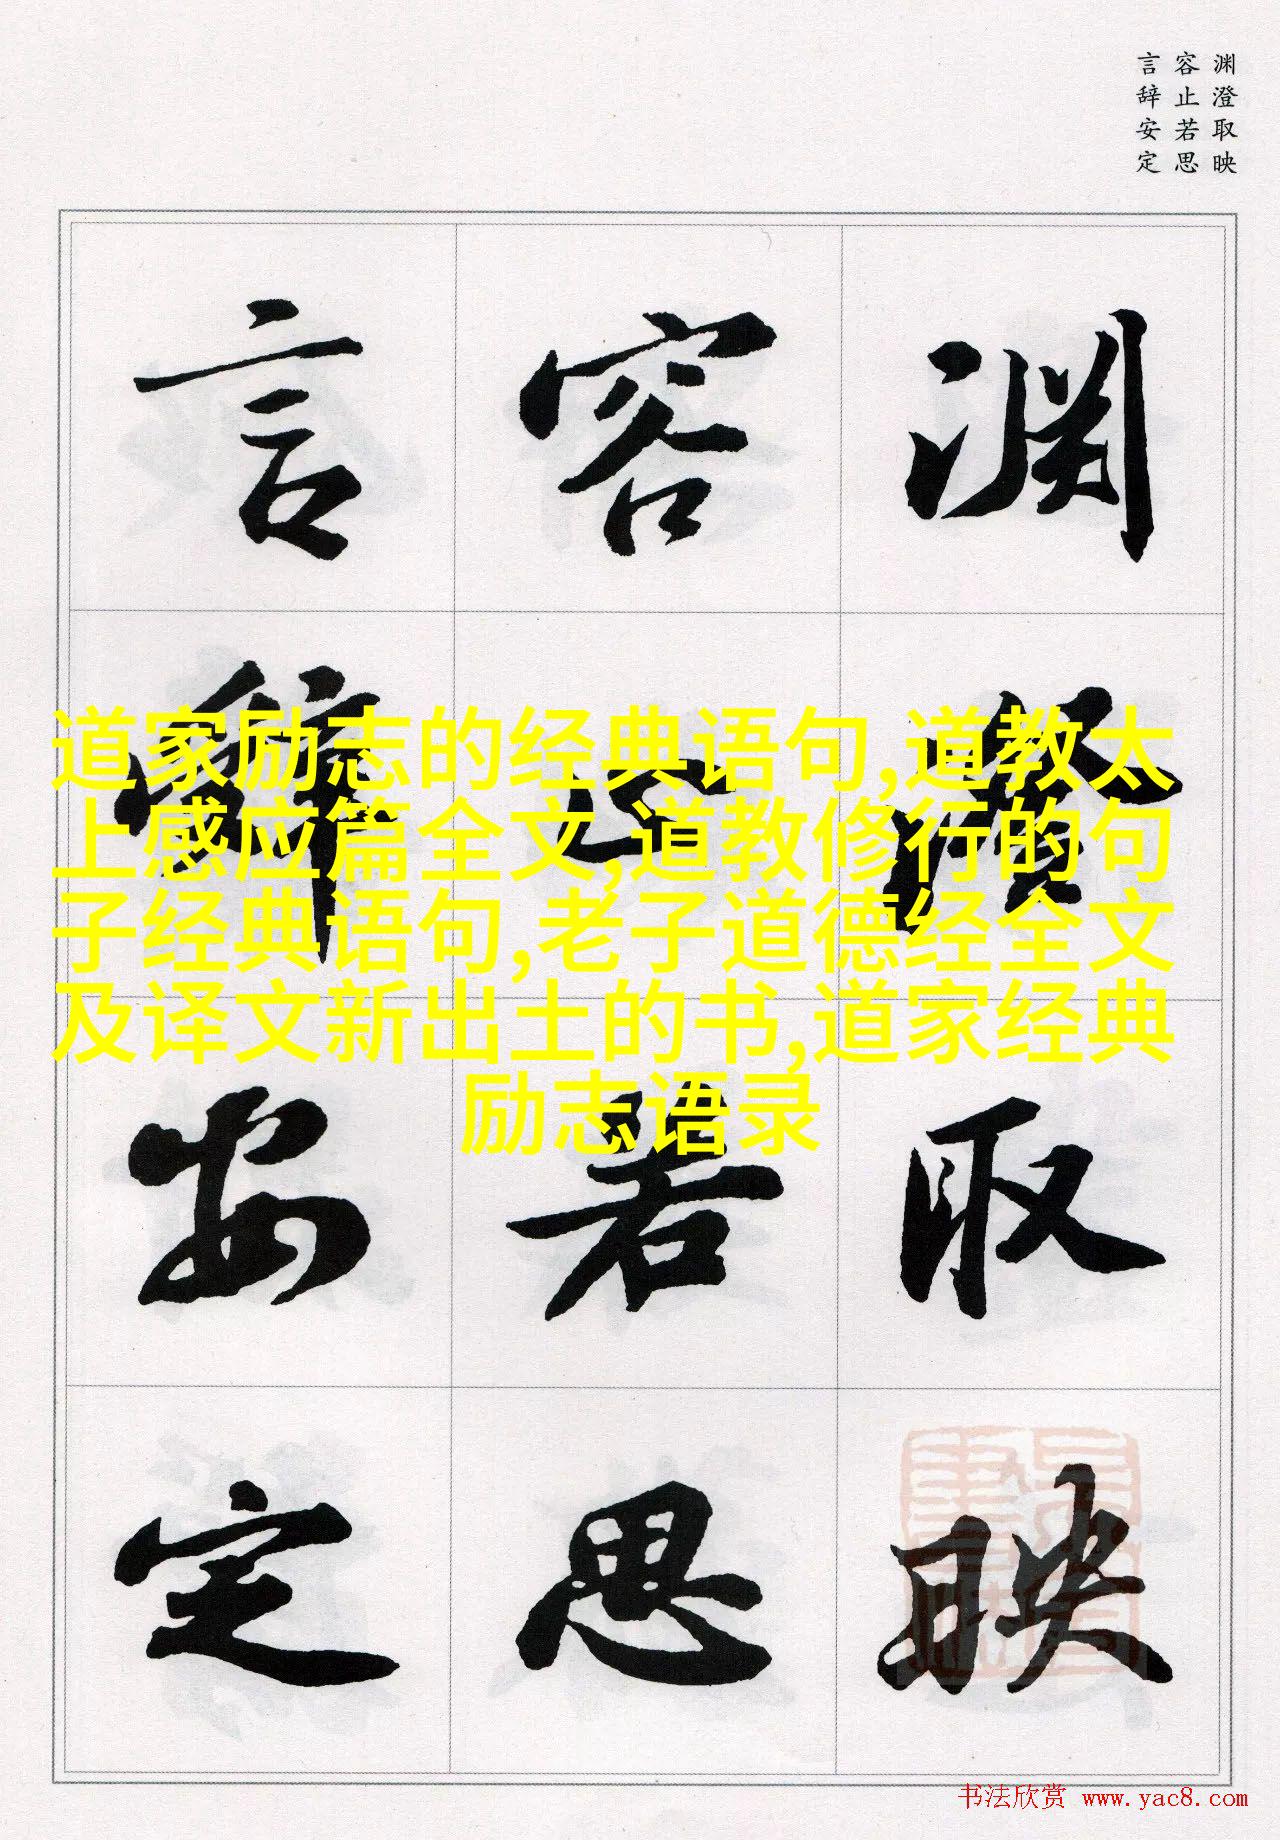 渊澄取映
容止若思
言辞安定
渊澄取映
容止若思
言辞安定
道家励志的经典语句,道教太
上感应篇全文,道教修行的句
子经典语句,老子道德经全文
及译文新出土的书,道家经典
励志语录
书法欣赏 www.yac8.com